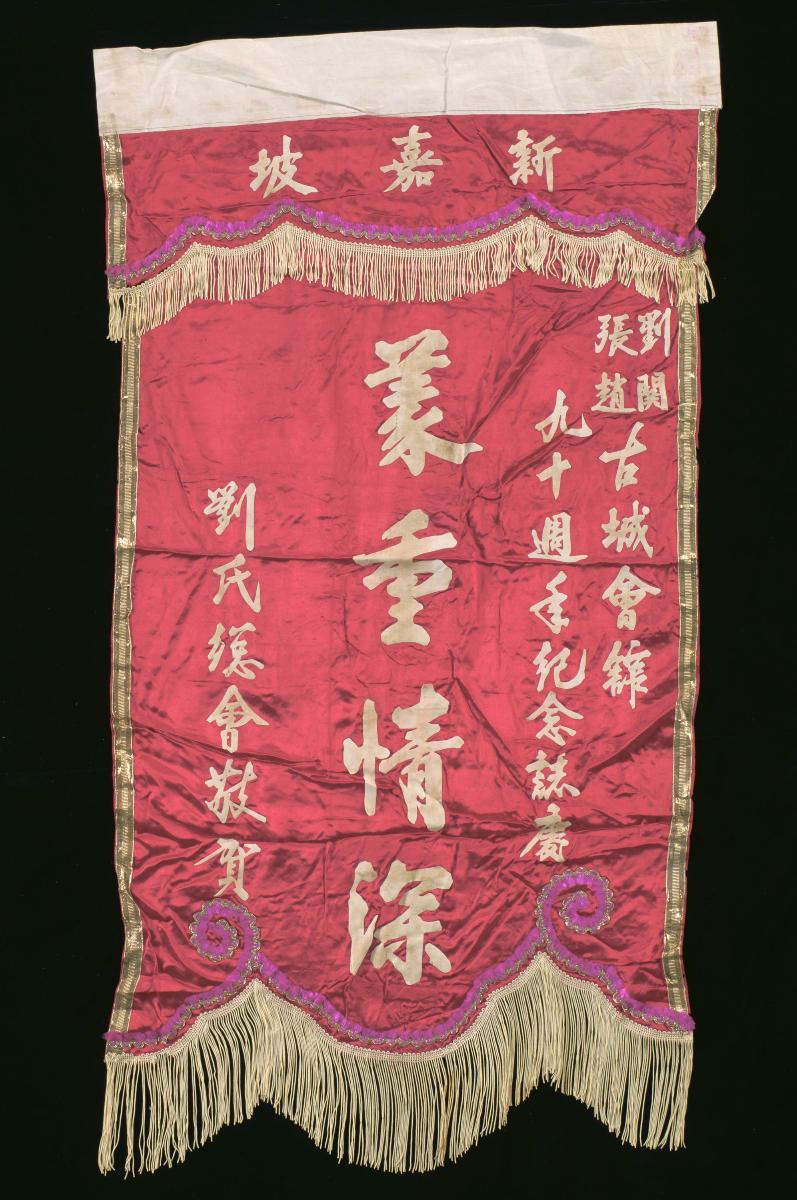 新嘉坡
劉關張趙古城會館
九十週年紀念誌慶
義重情深
劉氏總會敬賀